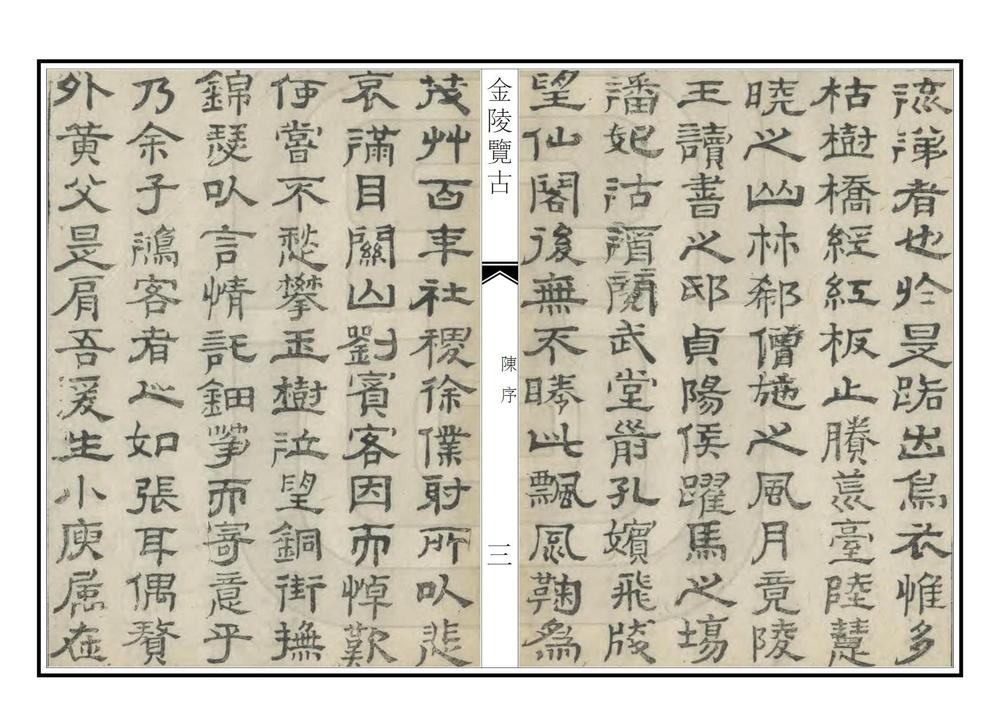 流涕者也於是路出烏衣惟多
枯樹橋經紅板止賸荒臺陸慧
曉之山林郗僧施之風月竟陵
王讀書之邸貞陽侯躍馬之場
潘妃沽酒閱武堂前孔嬪飛牋
望仙閣後無不勝此飄風鞠為
金陵覽古
陳序
三
茂艸百年社稷徐僕射所以悲
哀滿目關山劉賓客因而悼歎
何嘗不愁攀玉樹泣望銅街撫
錦瑟以言情託鈿箏而寄意乎
乃余子鴻客者如張耳偶贅
外黃父是肩吾爰生小庾在